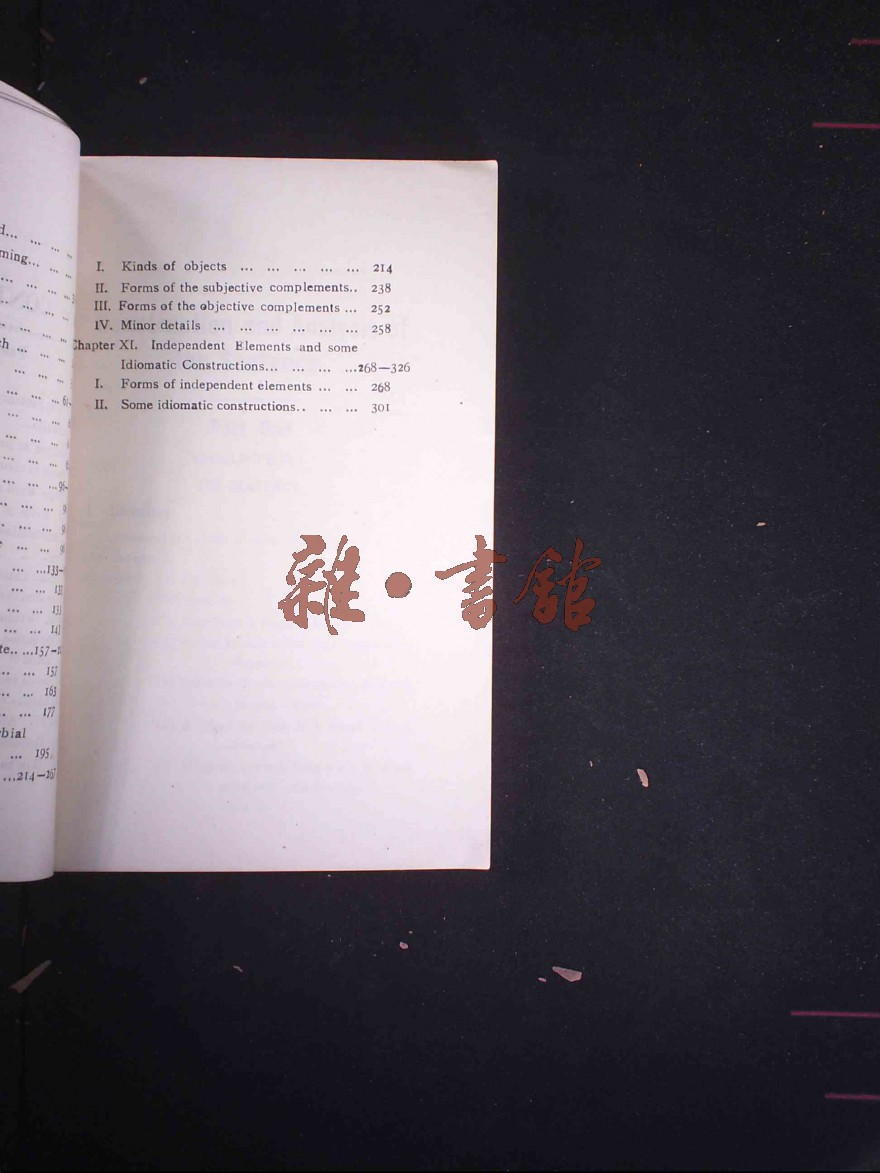 d... ... ... ...
ming... ... ...
ch ... ...
... ... ...96-
... ... ...133-
... ... 133
... ... 141
te.. ...157-
... ... 157
... ... 163
... ... 177
rbial
... 195
...214—267
I. Kinds of objects ... ... ... ... ... 214
II. Forms of the subjective complements.. 238
III. Forms of the objective complements ... 252
IV. Minor details ... ... ... ... ... ... 258
Chapter XI. Independent Elements and some
Idiomatic Constructions... ... ... ...268—326
I. Forms of independent elements ... ... 268
II. Some idiomatic constructions.. ... ... 301
雜•書館